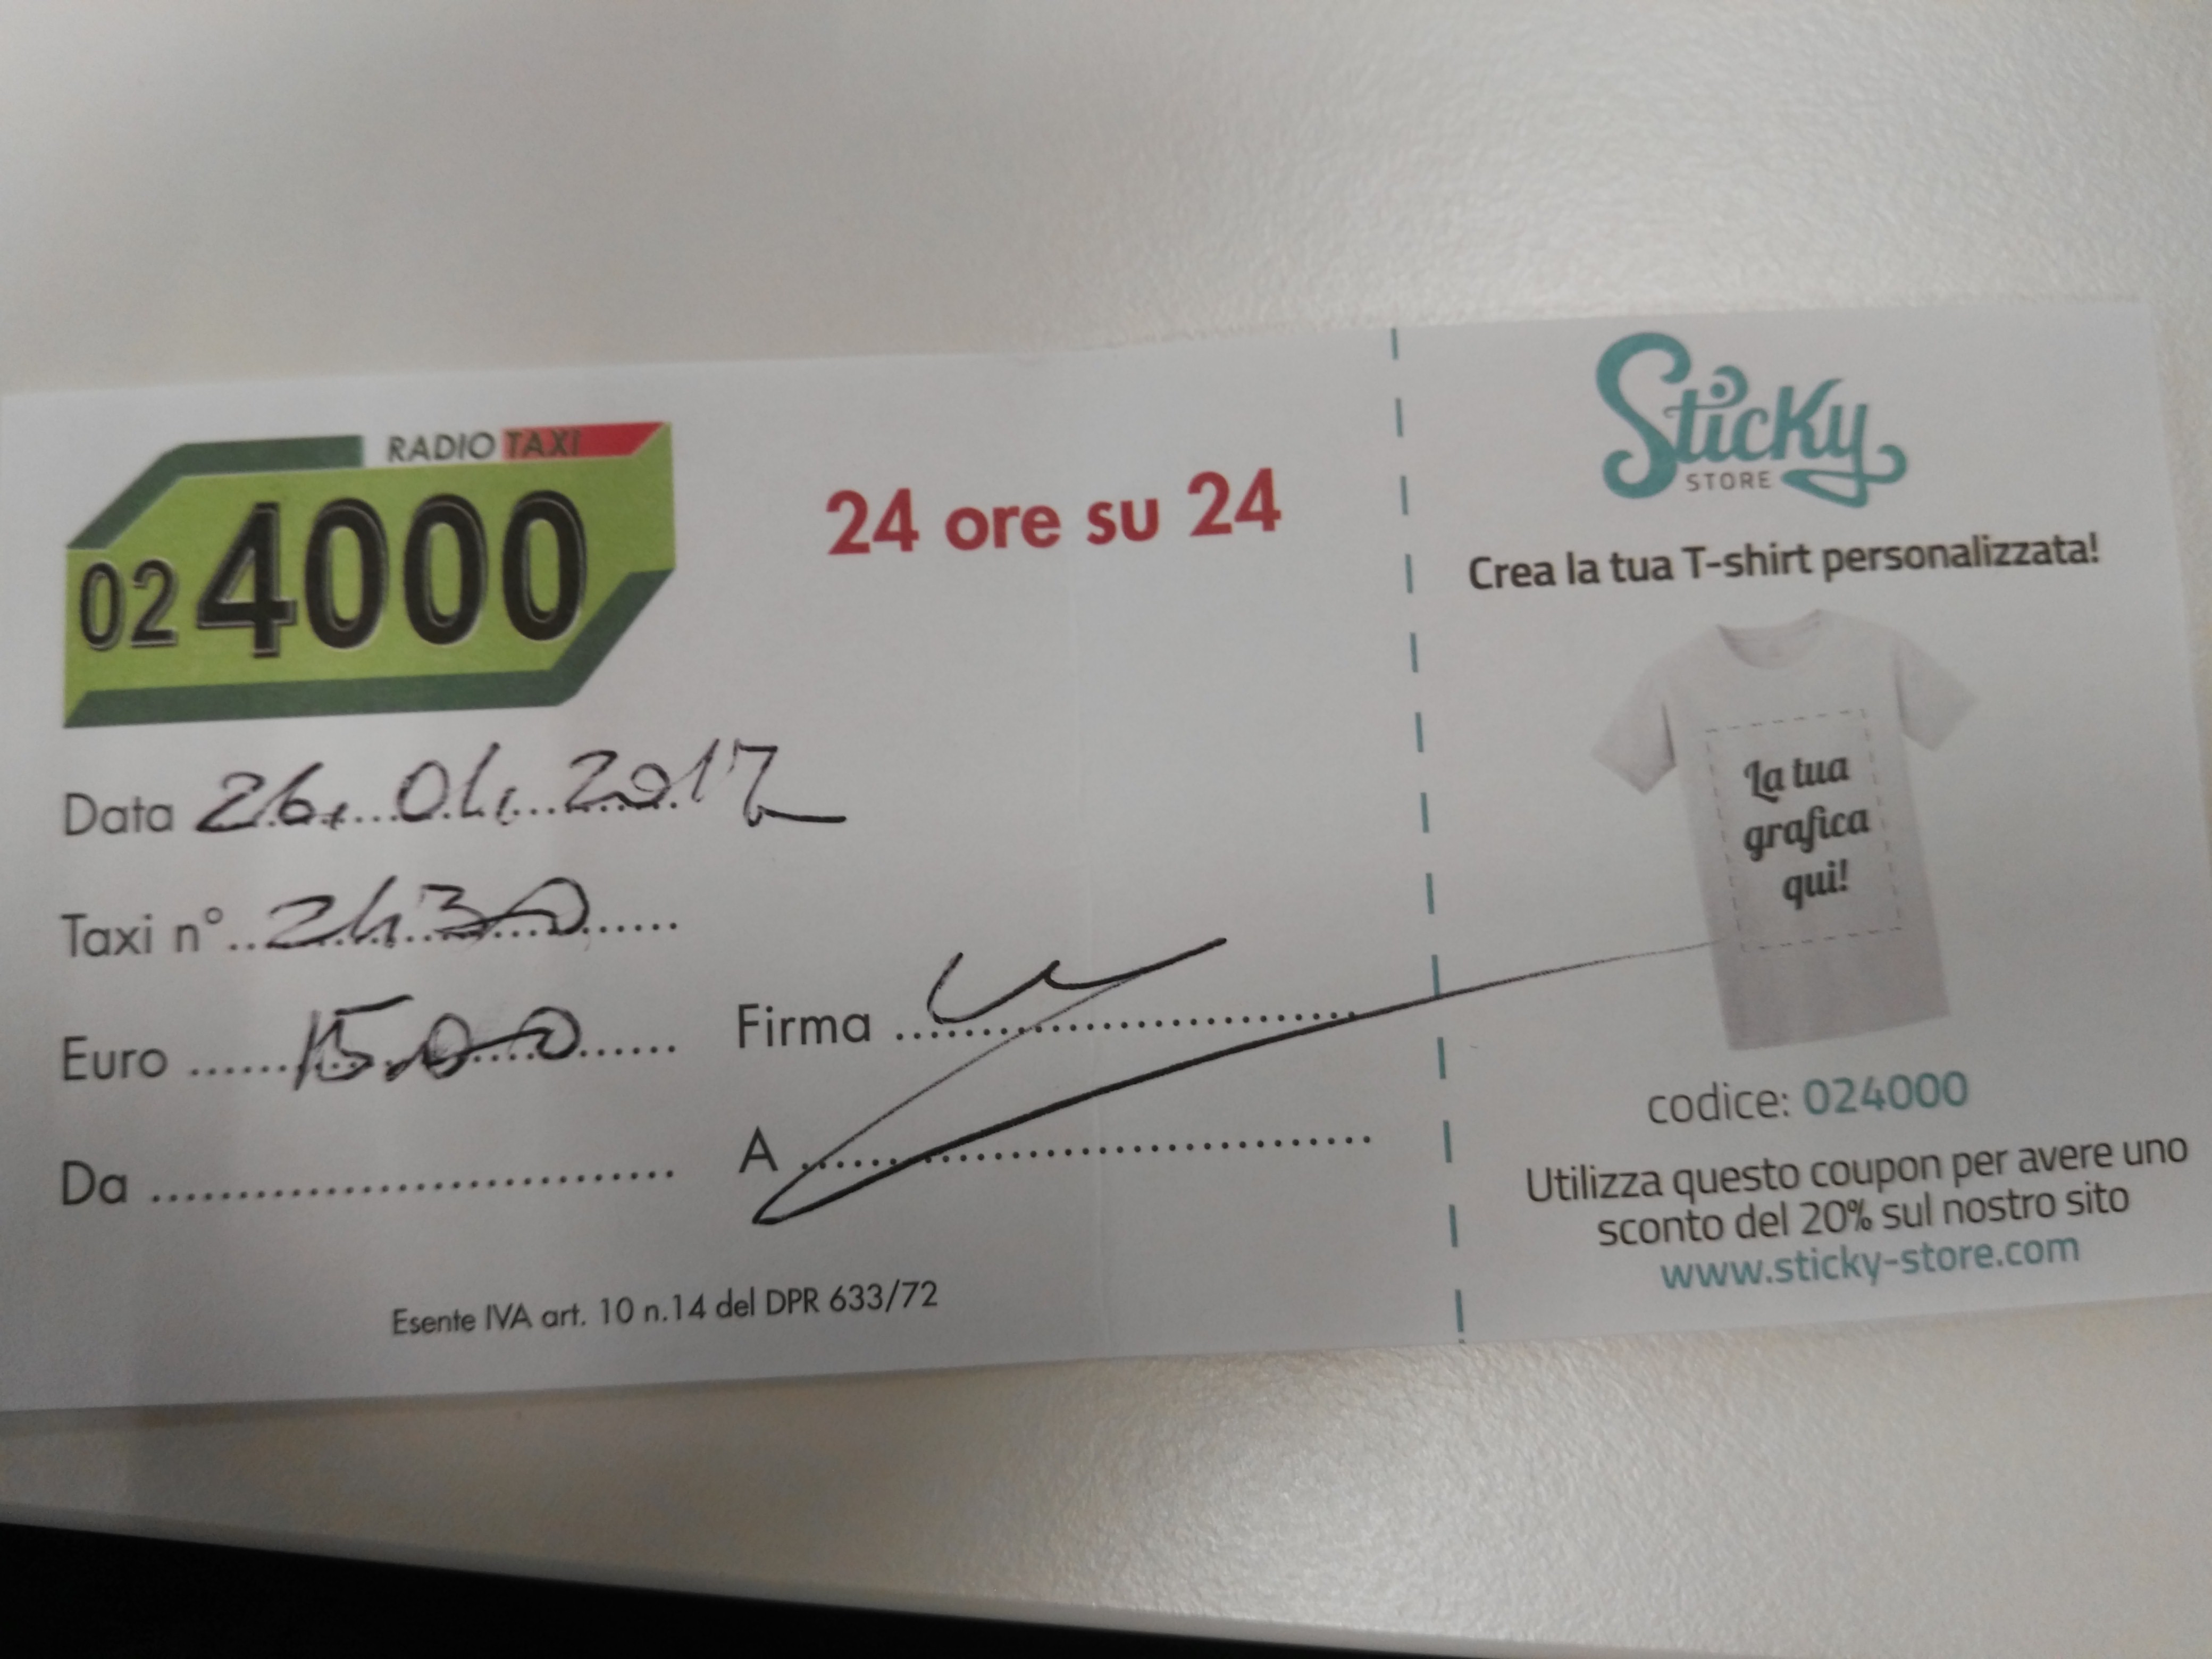 RADIO TAXI
02 4000
24 ore su 24
Data 26. 04. 2017
Taxi n° 2430
Euro 15.00
Firma
Da
A
Esente IVA art. 10 n.14 del DPR 633/72
Sticky
STORE
Crea la tua T-shirt personalizzata!
La tua
grafica
qui!
codice: 024000
Utilizza questo coupon per avere uno
sconto del 20% sul nostro sito
www.sticky-store.com